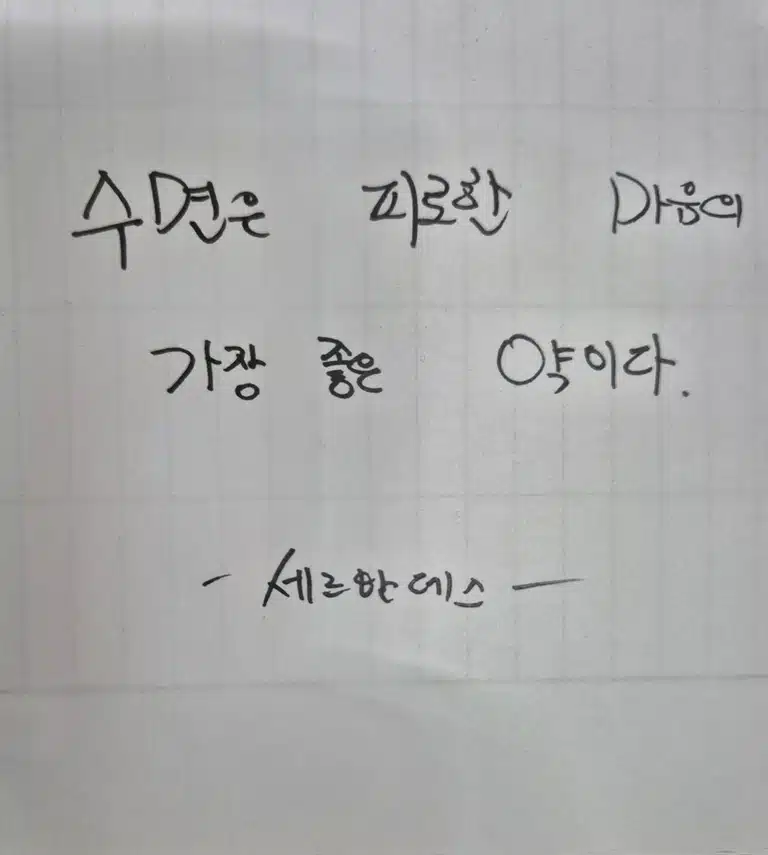 수면은 피로한 마음의
가장 좋은 약이다.
- 세르반데스 -